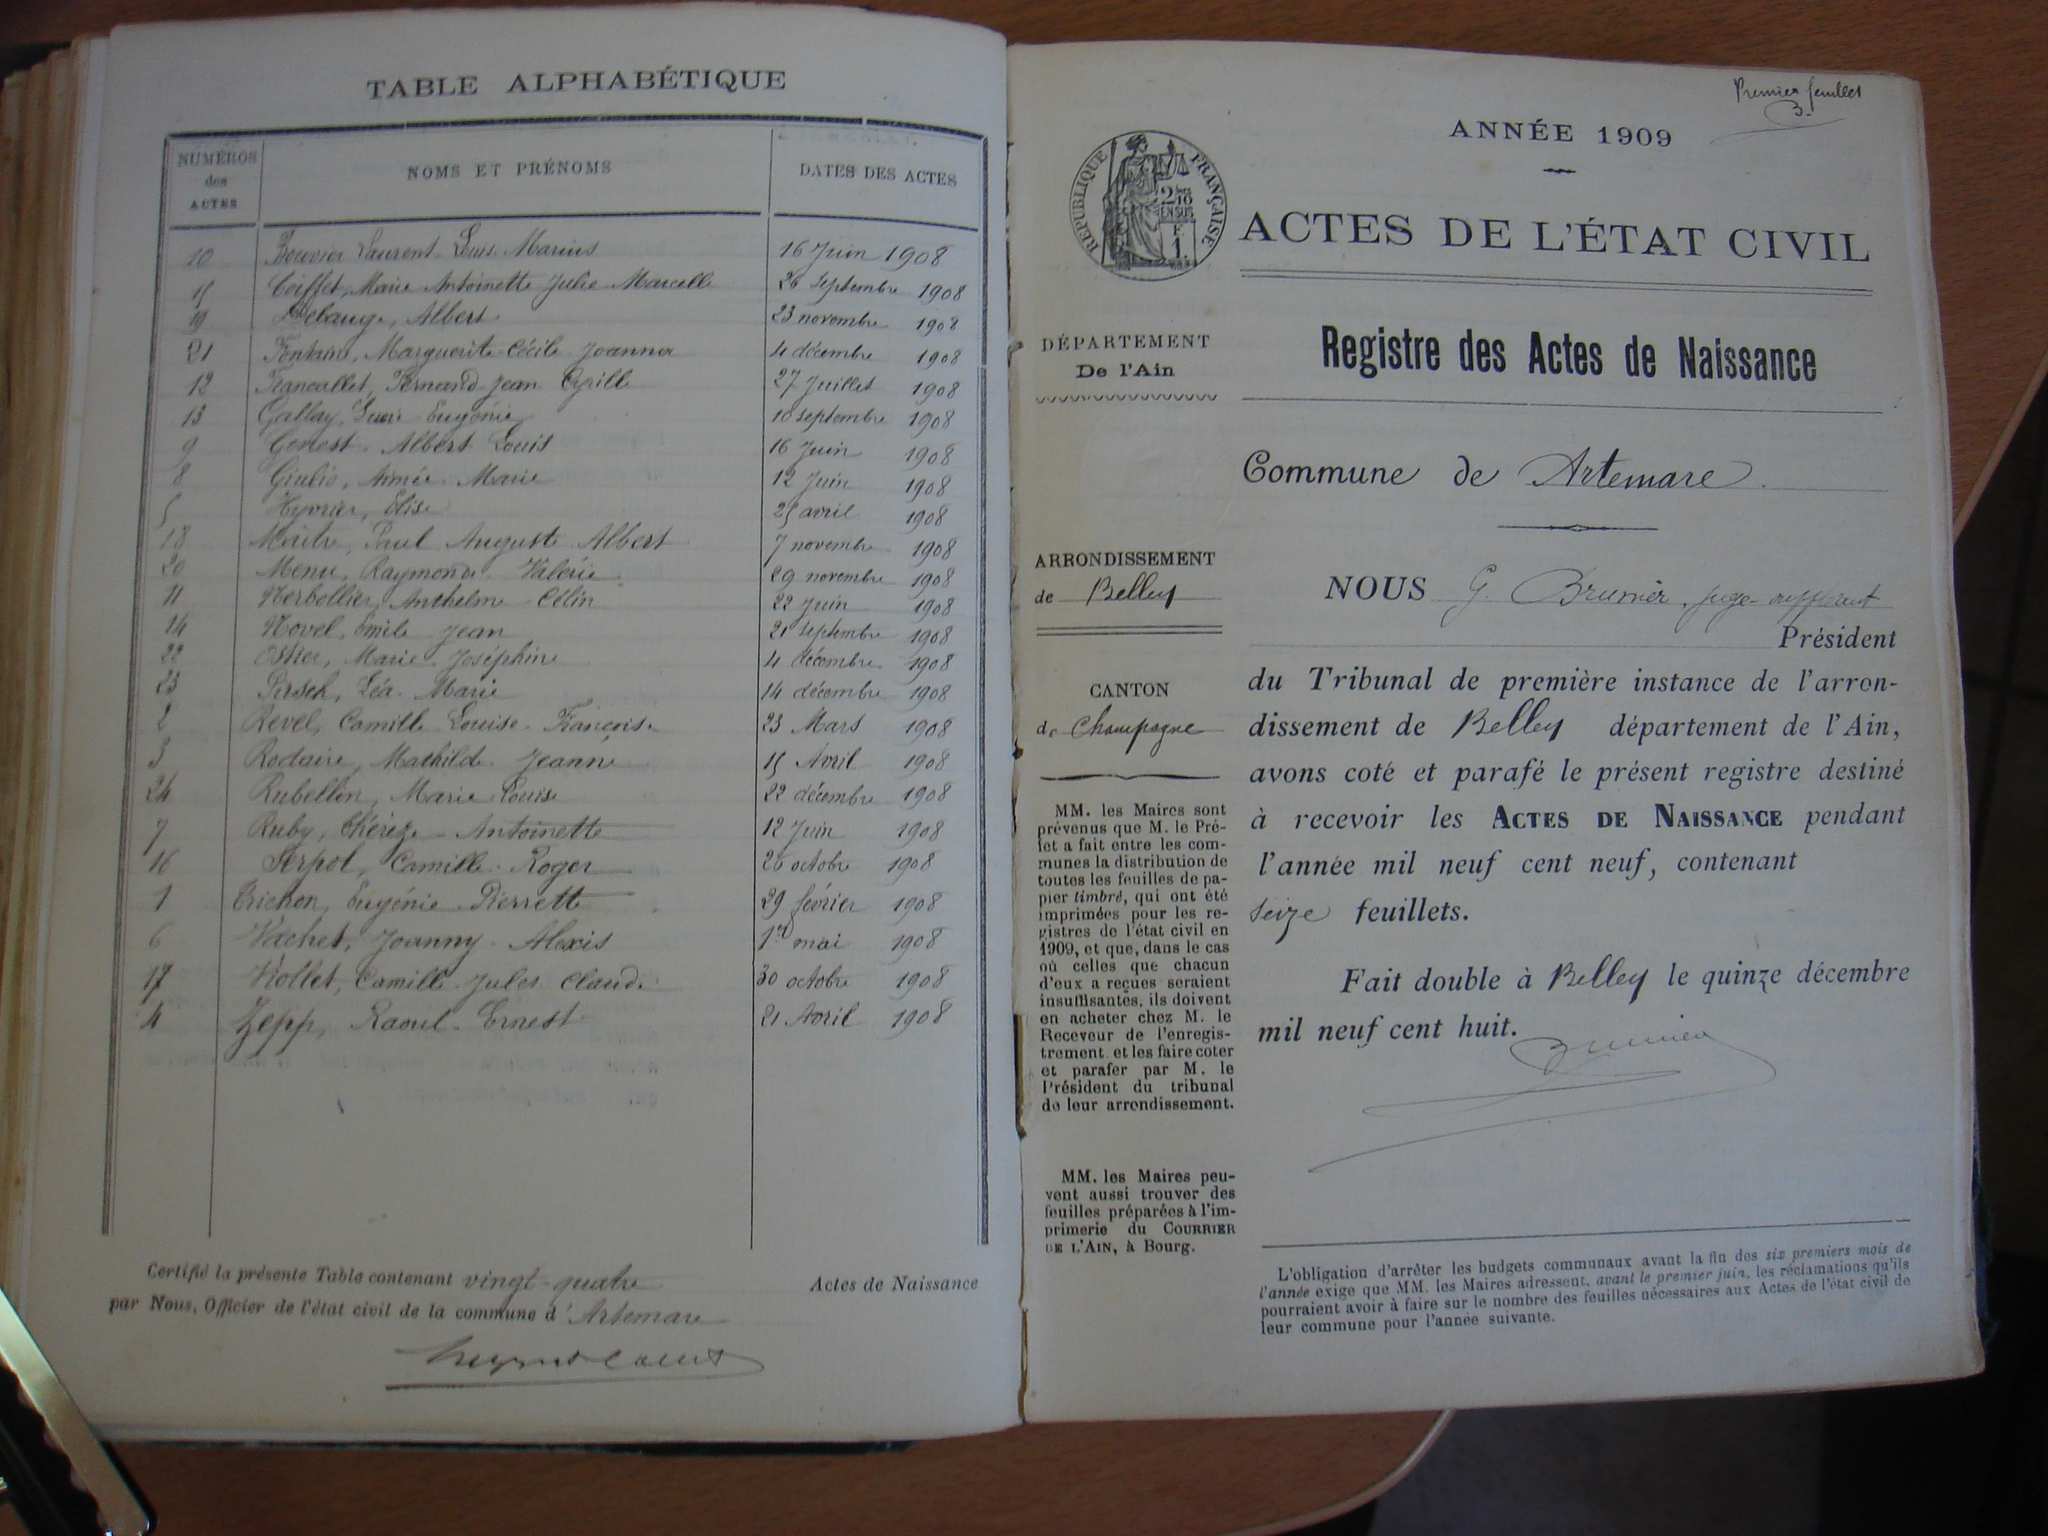 TABLE ALPHABÉTIQUE
NUMÉROS des ACTES
NOMS ET PRÉNOMS
DATES DES ACTES
10 Bouvier Laurent Louis Marius 16 Juin 1908
15 Coiffet, Marie Antoinette Julie Marcelle 26 Septembre 1908
19 Delauge, Albert 23 novembre 1908
21 Fontaine, Marguerite Cécile Joanna 4 décembre 1908
12 Francallet, Fernand Jean Cyrille 27 Juillet 1908
13 Gallay, Eugénie 10 septembre 1908
9 Genest Albert Louis 16 Juin 1908
8 Aimée Marie 12 Juin 1908
5 Hyvrier, Elise 25 avril 1908
18 Maître, Paul Auguste Albert 7 novembre 1908
20 Menu, Raymond Valérie 29 novembre 1908
11 Nerbollier, Anthelme Célin 22 Juin 1908
14 Novel, Emile Jean 21 septembre 1908
22 Ostier, Marie Joséphine 4 décembre 1908
23 Persch, Léa Marie 14 décembre 1908
2 Revel, Camille Louise Françoise 23 Mars 1908
3 Rodaire, Mathilde Jeanne 15 Avril 1908
24 Rubellin, Marie Louise 22 décembre 1908
7 Ruby, Thérèze Antoinette 12 Juin 1908
16 Serpol, Camille Roger 26 octobre 1908
1 Trichon, Eugénie Pierrette 29 février 1908
6 Vachet, Joanny Alexis 1er mai 1908
17 Viollet, Camille Jules Claude 30 octobre 1908
4 Zepp, Raoul Ernest 21 Avril 1908
Certifié la présente Table contenant vingt-quatre Actes de Naissance
par Nous, Officier de l'état civil de la commune d'Artemare
Premier feuillet
ANNÉE 1909
RÉPUBLIQUE FRANÇAISE
2/10 EN SUS
1 F.
ACTES DE L'ÉTAT CIVIL
DÉPARTEMENT
De l'Ain
Registre des Actes de Naissance
Commune de Artemare
ARRONDISSEMENT
de Belley
CANTON
de Champagne
MM. les Maires sont
prévenus que M. le Pré-
fet a fait entre les com-
munes la distribution de
toutes les feuilles de pa-
pier timbré, qui ont été
imprimées pour les re-
gistres de l'état civil en
1909, et que, dans le cas
où celles que chacun
d'eux a reçues seraient
insuffisantes, ils doivent
en acheter chez M. le
Receveur de l'enregis-
trement et les faire coter
et parafer par M. le
Président du tribunal
de leur arrondissement.
MM. les Maires peu-
vent aussi trouver des
feuilles préparées à l'im-
primerie du COURRIER
DE L'AIN, à Bourg.
NOUS G. Brunier, juge suppléant
Président
du Tribunal de première instance de l'arron-
dissement de Belley département de l'Ain,
avons coté et parafé le présent registre destiné
à recevoir les ACTES DE NAISSANCE pendant
l'année mil neuf cent neuf, contenant
seize feuillets.
Fait double à Belley le quinze décembre
mil neuf cent huit.
Brunier
L'obligation d'arrêter les budgets communaux avant la fin des six premiers mois de
l'année exige que MM. les Maires adressent, avant le premier juin, les réclamations qu'ils
pourraient avoir à faire sur le nombre des feuilles nécessaires aux Actes de l'état civil de
leur commune pour l'année suivante.